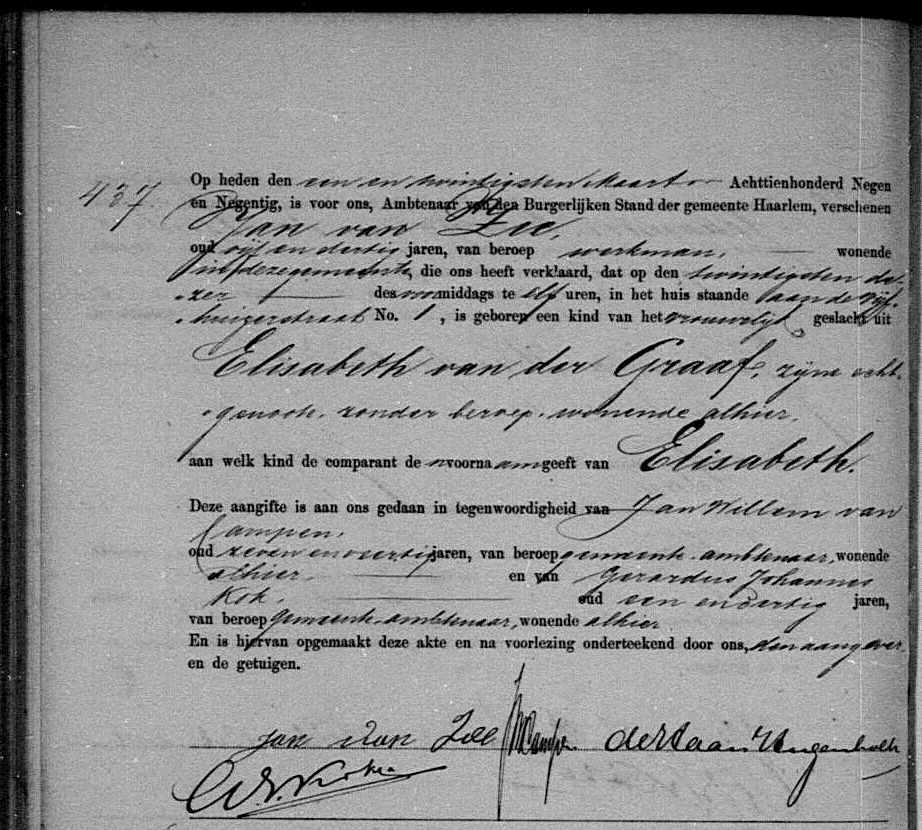 437
Op heden den een en twintigsten Maart Achttienhonderd Negen
en Negentig, is voor ons, Ambtenaar van den Burgerlijken Stand der gemeente Haarlem, verschenen
Jan van Zee,
oud vijf en dertig jaren, van beroep werkman, wonende
in deze gemeente, die ons heeft verklaard, dat op den twintigsten de-
zer des voormiddags te elf uren, in het huis staande aan de Vijf-
huizerstraat No. 1, is geboren een kind van het vrouwelijk geslacht uit
Elisabeth van der Graaf, zijne echt-
genoote, zonder beroep, wonende alhier,
aan welk kind de comparant den voornaam geeft van Elisabeth.
Deze aangifte is aan ons gedaan in tegenwoordigheid van Jan Willem van
Campen,
oud zeven en veertig jaren, van beroep gemeente-ambtenaar, wonende
alhier en van Gerardus Johannes
Kok, oud een en dertig jaren,
van beroep gemeente-ambtenaar, wonende alhier.
En is hiervan opgemaakt deze akte en na voorlezing onderteekend door ons, den aangever
en de getuigen.
Jan van Zee Campen de Haan Hugenholtz